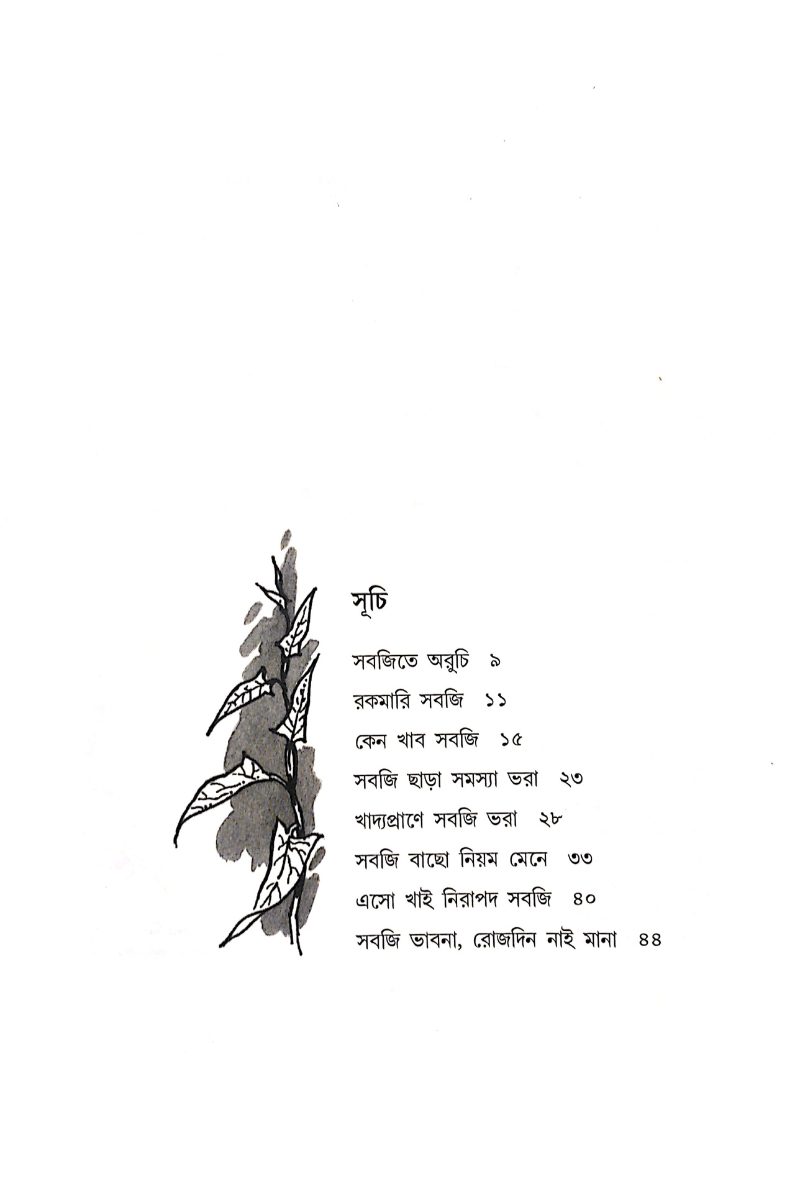 সূচি
সবজিতে অরুচি ৯
রকমারি সবজি ১১
কেন খাব সবজি ১৫
সবজি ছাড়া সমস্যা ভরা ২৩
খাদ্যপ্রাণে সবজি ভরা ২৮
সবজি বাছো নিয়ম মেনে ৩৩
এসো খাই নিরাপদ সবজি ৪০
সবজি ভাবনা, রোজদিন নাই মানা ৪৪